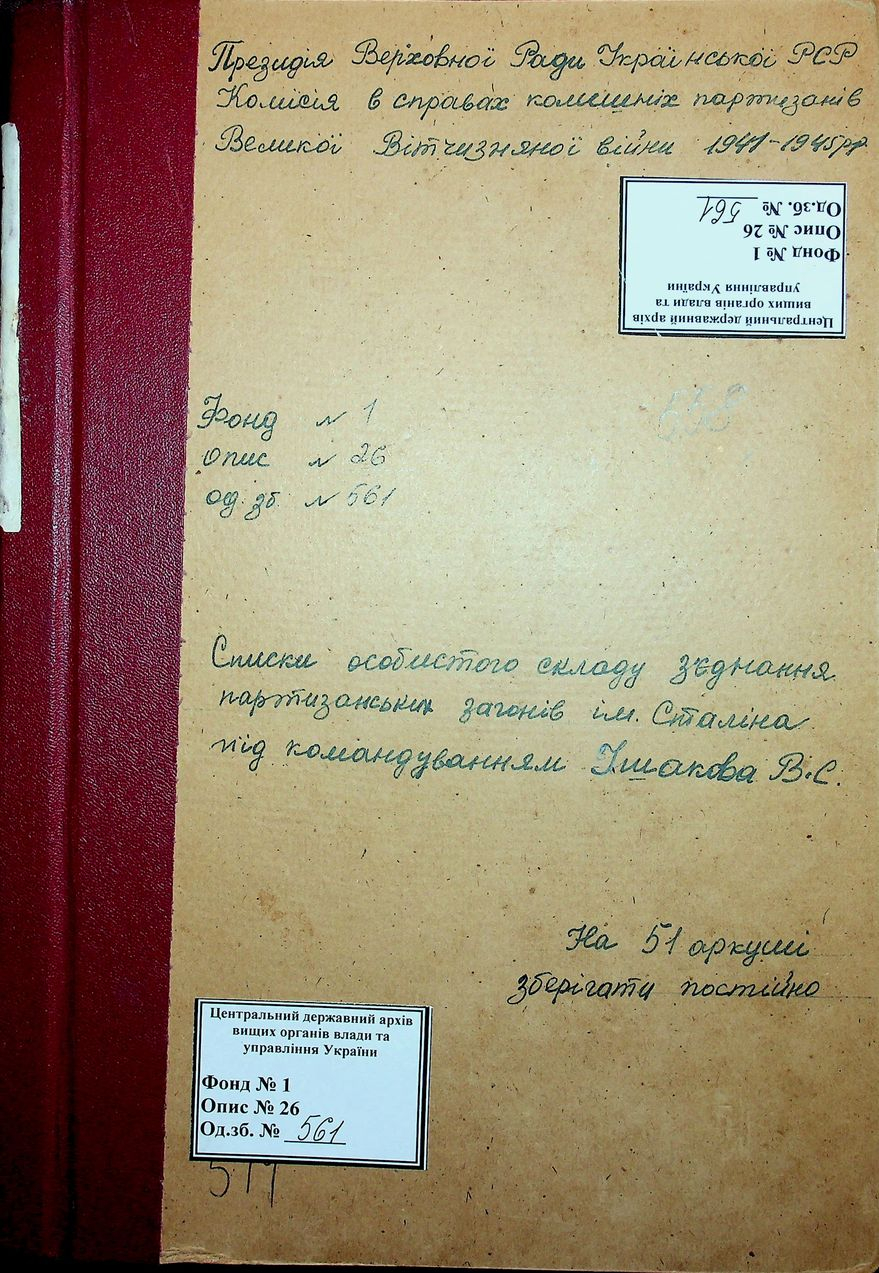 Президія Верховної Ради Української РСР
Комісія в справах колишніх партизанів
Великої Вітчизняної війни 1941-1945рр
Центральний державний архів
вищих органів влади та
управління України
Фонд № 1
Опис № 26
Од.зб. № 561
558
Фонд № 1
опис № 26
од. зб. № 561
Списки особистого складу з'єднання
партизанських загонів ім. Сталіна
під командуванням Ушакова В.С.
На 51 аркуші
зберігати постійно
Центральний державний архів
вищих органів влади та
управління України
Фонд № 1
Опис № 26
Од.зб. № 561